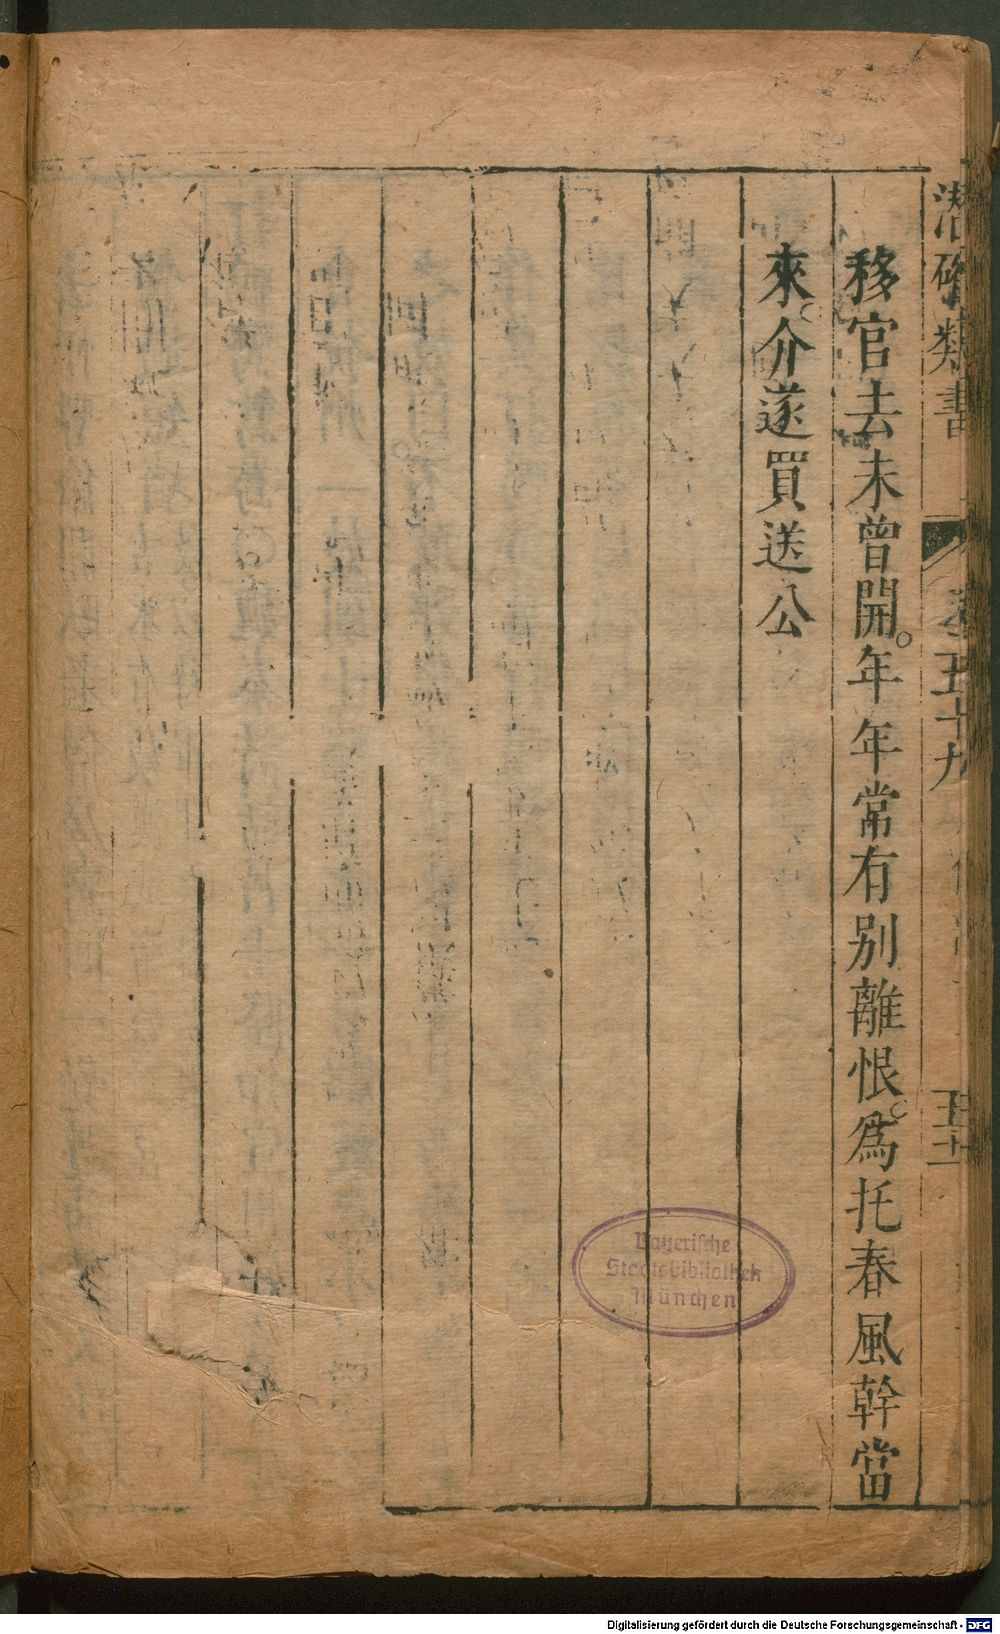 潜確類書
卷五十九
五十一
移官去未曾開。年年常有別離恨。爲托春風幹當
來。介遂買送公
Bayerische
Staatsbibliothek
München
Digitalisierung gefördert durch die Deutsche Forschungsgemeinschaft - DFG